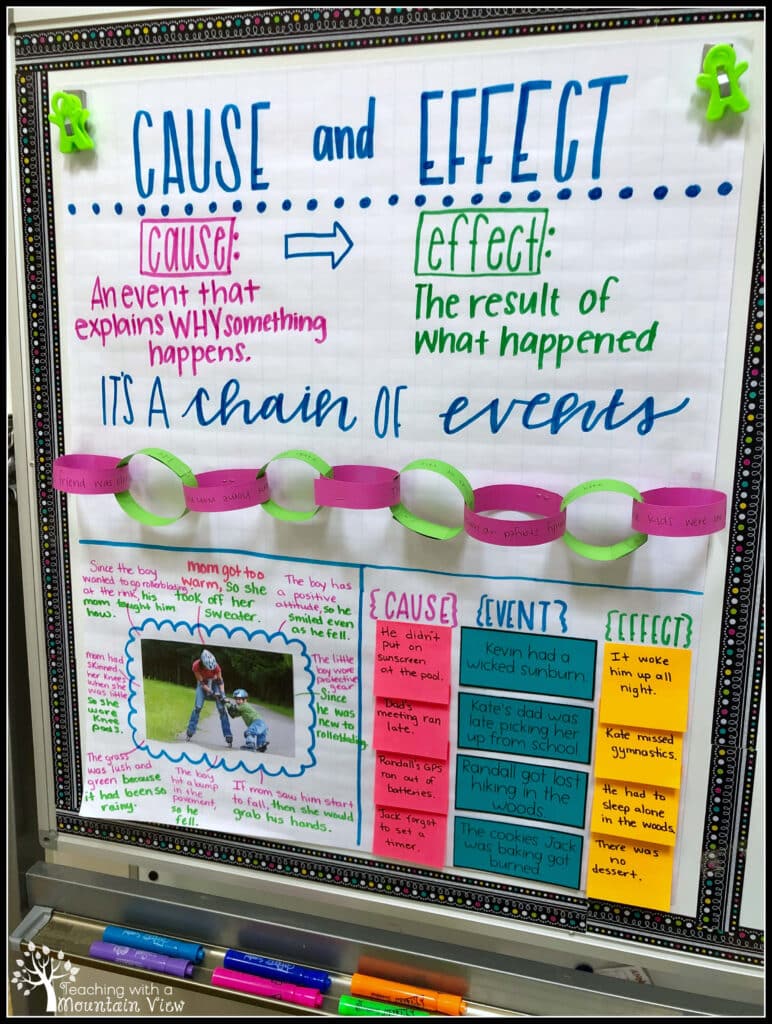 CAUSE and EFFECT
cause:
An event that
explains WHY something
happens.
effect:
The result of
what happened
IT'S A chain OF events
friend was
kids were
Since the boy
wanted to go rollerblading
at the rink, his
mom taught him
how.
mom got too
warm, so she
took off her
sweater.
The boy has
a positive
attitude, so he
smiled even
as he fell.
mom had
skinned
her knees
when she
was little
so she
wore
knee
pads.
The little
boy wore
protective
gear
Since
he was
new to
rollerblading
The grass
was lush and
green because
it had been so
rainy.
The boy
hit a bump
in the
pavement,
so he
fell.
If mom saw him start
to fall, then she would
grab his hands.
{CAUSE}
He didn't
put on
sunscreen
at the pool.
Dad's
meeting ran
late.
Randall's GPS
ran out of
batteries.
Jack forgot
to set a
timer.
{EVENT}
Kevin had a
wicked sunburn.
Kate's dad was
late picking her
up from school
Randall got lost
hiking in the
woods
The cookies Jack
was baking got
burned
{EFFECT}
It woke
him up all
night.
Kate missed
gymnastics.
He had to
sleep alone
in the woods.
There was
no
dessert.
Teaching with a
Mountain View